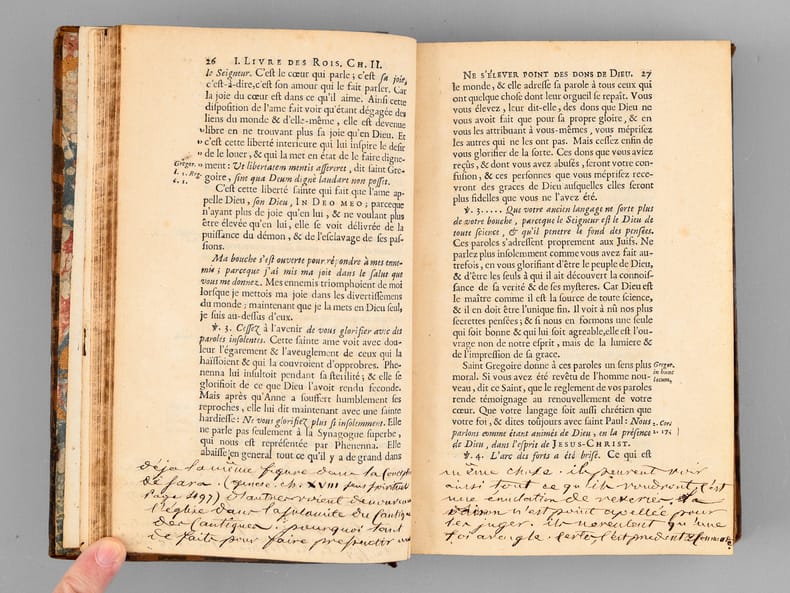 26 I. LIVRE DES ROIS. CH. II.
le Seigneur. C'est le cœur qui parle; c'est sa joie,
c'est-à-dire, c'est son amour qui le fait parler. Car
la joie du cœur est dans ce qu'il aime. Ainsi cette
disposition de l'ame fait voir qu'étant dégagée des
liens du monde & d'elle-même, elle est devenue
„libre en ne trouvant plus sa joie qu'en Dieu. Et
„c'est cette liberté interieure qui lui inspire le desir
„de le louer, & qui la met en état de le faire digne-
Gregor.
l. 2. Reg.
c. 1.
„ment: Ut libertatem mentis assereret, dit saint Gre-
goire, sine qua Deum digne laudare non possit.
C'est cette liberté sainte qui fait que l'ame ap-
pelle Dieu, son Dieu, IN DEO MEO; parceque
n'ayant plus de joie qu'en lui, & ne voulant plus
être élevée qu'en lui, elle se voit délivrée de la
puissance du démon, & de l'esclavage de ses pas-
sions.
Ma bouche s'est ouverte pour répondre à mes enne-
mis; parceque j'ai mis ma joie dans le salut que
vous me donnez. Mes ennemis triomphoient de moi
lorsque je mettois ma joie dans les divertissemens
du monde; maintenant que je la mets en Dieu seul,
je suis au-dessus d'eux.
℣. 3. Cessez à l'avenir de vous glorifier avec des
paroles insolentes. Cette sainte ame voit avec dou-
leur l'égarement & l'aveuglement de ceux qui la
haïssoient & qui la couvroient d'opprobres. Phe-
nenna lui insultoit pendant sa sterilité; & elle se
glorifioit de ce que Dieu l'avoit rendu feconde.
Mais après qu'Anne a souffert humblement ses
reproches, elle lui dit maintenant avec une sainte
hardiesse: Ne vous glorifiez plus si insolemment. Elle
ne parle pas seulement à la Synagogue superbe,
qui nous est représentée par Phenenna. Elle
abaisse en general tout ce qu'il y a de grand dans
déja la même figure dans la
de sara. (genese. ch. XVIII sens spirituel
Page 497) D'autres
l'église dans la sulamite du cantique
des Cantiques: pourquoi tant
de faits pour faire
NE S'ÉLEVER POINT DES DONS DE DIEU. 27
le monde, & elle adresse sa parole à tous ceux qui
ont quelque chose dont leur orgueil se repaît. Vous
vous élevez, leur dit-elle, des dons que Dieu ne
vous avoit fait que pour sa propre gloire, & en
vous les attribuant à vous-mêmes, vous méprisez
les autres qui ne les ont pas. Mais cessez enfin de
vous glorifier de la sorte. Ces dons que vous aviez
reçûs, & dont vous avez abusés, seront votre con-
fusion, & ces personnes que vous méprisez rece-
vront des graces de Dieu ausquelles elles seront
plus fidelles que vous ne l'avez été.
℣. 3..... Que votre ancien langage ne sorte plus
de votre bouche, parceque le Seigneur est le Dieu de
toute science, & qu'il penetre le fond des pensées.
Ces paroles s'adressent proprement aux Juifs. Ne
parlez plus insolemment comme vous avez fait au-
trefois, en vous glorifiant d'être le peuple de Dieu,
& d'être les seuls à qui il ait découvert la connois-
sance de sa verité & de ses mysteres. Car Dieu est
le maître comme il est la source de toute science,
& il en doit être l'unique fin. Il voit à nû nos plus
secrettes pensées; & si nous en formons une seule
qui soit bonne & qui lui soit agreable, elle est l'ou-
vrage non de notre esprit, mais de la lumiere &
de l'impression de sa grace.
Saint Gregoire donne à ces paroles un sens plus
Gregor.
in hunc
locum,
moral. Si vous avez été revêtu de l'homme nou-
veau, dit ce Saint, que le reglement de vos paroles
rende témoignage au renouvellement de votre
cœur. Que votre langage soit aussi chrétien que
votre foi, & dites toûjours avec saint Paul: Nous
2. Cor.
2. 17.
parlons comme étant animés de Dieu, en la présence
de Dieu, dans l'esprit de JESUS-CHRIST.
℣. 4. L'arc des forts a été brisé. Ce qui est
même chose. ils peuvent voir
ainsi tout ce qu'ils voudront, c'est
une émulation de reveries. la
raison n'est point apellée pour
les juger. ils ne veulent qu'une
foi aveugle. certes, c'est prudent